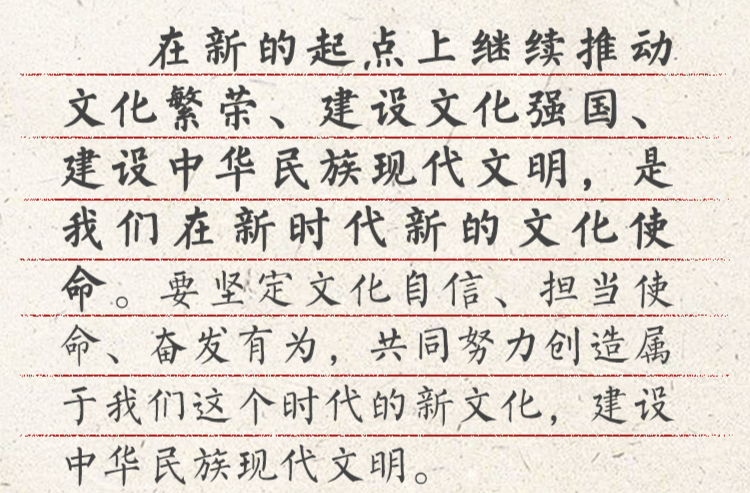 在新的起点上继续推动
文化繁荣、建设文化强国、
建设中华民族现代文明，是
我们在新时代新的文化使
命。要坚定文化自信、担当使
命、奋发有为，共同努力创造属
于我们这个时代的新文化，建设
中华民族现代文明。